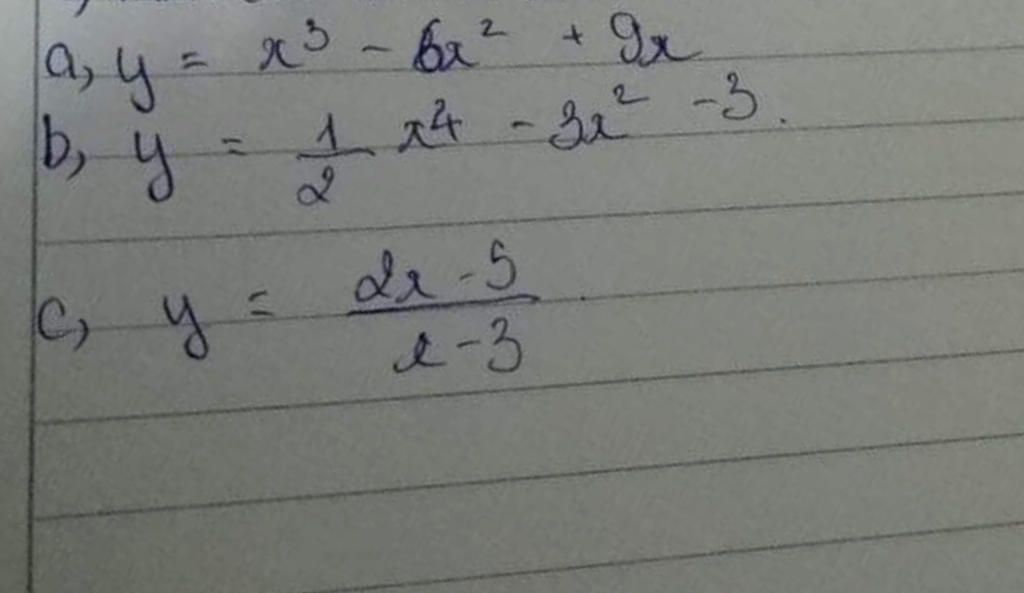 a, y = x³ - 6x² + 9x
b, y = \frac{1}{2} x⁴ - 3x² - 3.
c, y = \frac{2x - 5}{x - 3}.